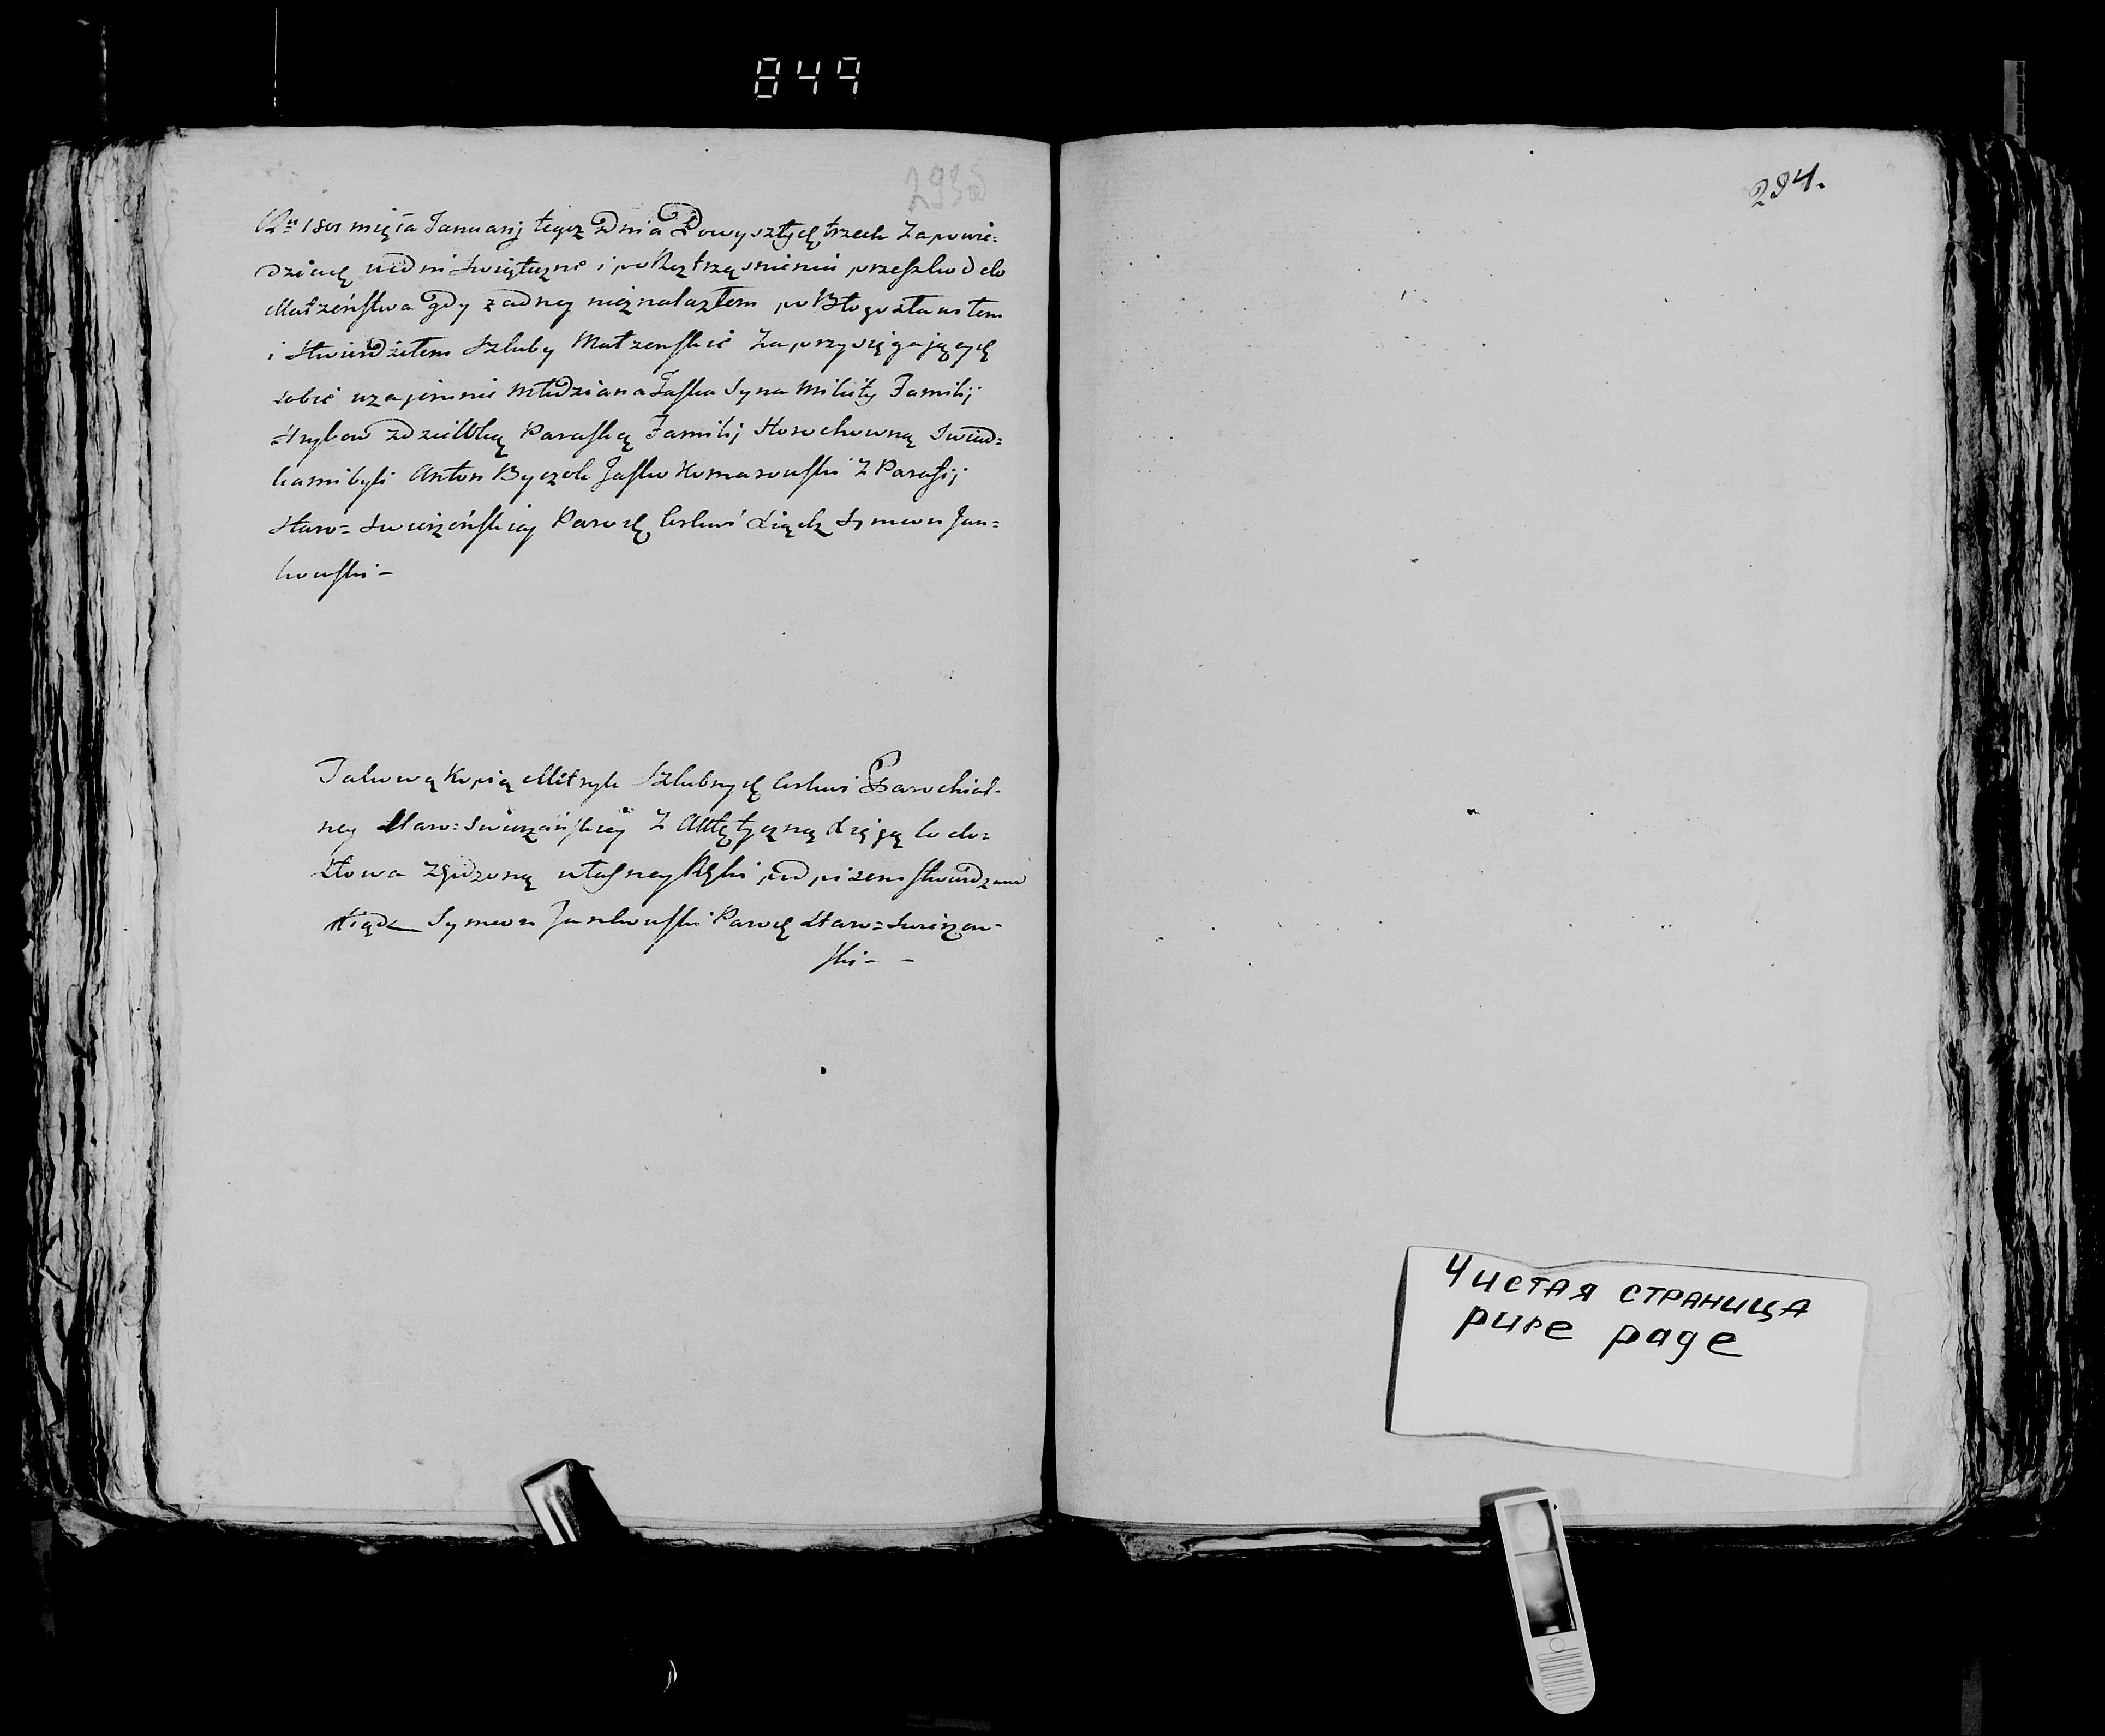 849
293
Ru 1801 mięca Januarij tegoż Dnia Powyszłych trzech Zapowie=
dziach w dni Swiętuzne i po Roztrząsnieniu przeszkod do
Małżeństwa gdy żadney nieznalazłem, po Błogosławiłem
i Stwierdziłem Szluby Małżenskie Zaprzysięgających
sobie wzajemnie Młodziana Jaśka Syna Mikity Familij
zdziewką Paraską Familij Horochowną Swiad=
kami byli Anton Byczek Jasko Komarowski Z Parafij
Staro=Swierzeńskiey Paroch Cerkwi Xiądz Symeon Jan=
kowski -
Takową Kopią Metryk Szlubnych Cerkwi Parochial-
ney Staro=Swierzańskiey Z Autętyczną Xięgą Co do=
Słowa Zgodzoną własney Ręki podpisem stwierdzam
Xiądz Symeon Jankowski Paroch Staro=Swierzen-
ski - -
294.
Чистая страница
pure page